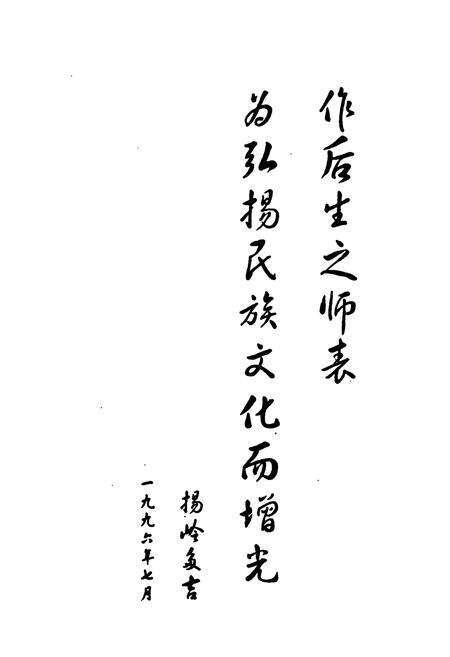 作后生之师表
为弘扬民族文化而增光
扬岭多吉
一九九六年七月